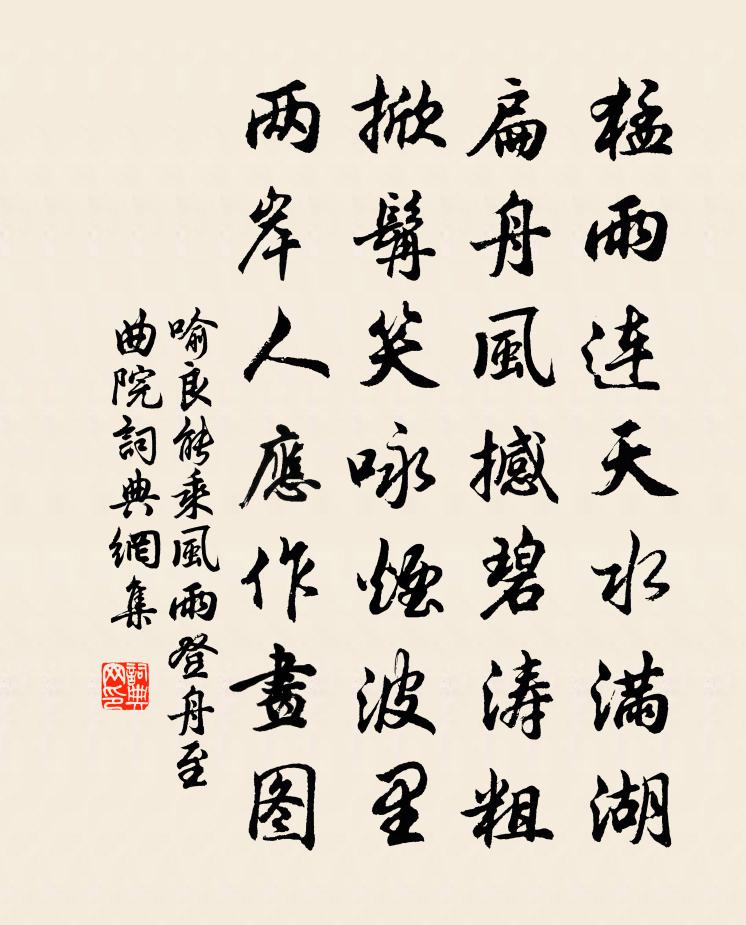 猛雨連天水滿湖
扁舟風撼碧濤粗
掀髯笑咏煙波里
两岸人應作畫图
喻良能乘風雨登舟至
曲院詞典網集
詞典网印